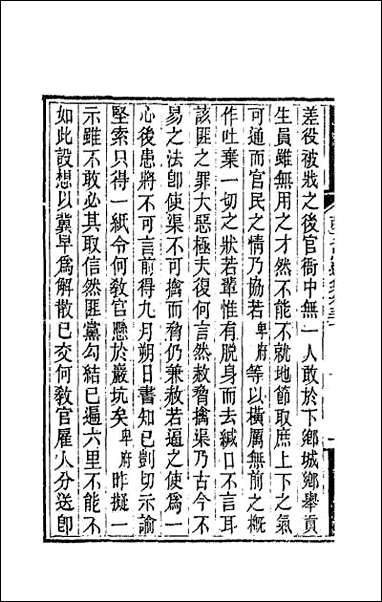 差役被戕之後官衙中無一人敢於下鄉城鄉舉貢
生員雖無用之才然不能不就地節取庶上下之氣
可通而官民之情乃協若卑府等以橫厲無前之槪
作吐棄一切之狀若輩惟有脫身而去緘口不言耳
該匪之罪大惡極夫復何言然赦脅擒渠乃古今不
易之法卽使渠不可擒而脅仍兼赦若逼之使爲一
心後患將不可言前得九月朔日書知已剴切示諭
堅索只得一紙令何敎官懸於巖坑矣卑府昨擬一
示雖不敢必其取信然匪黨勾結已遍六里不能不
如此設想以冀早爲解散已交何敎官雇人分送卽